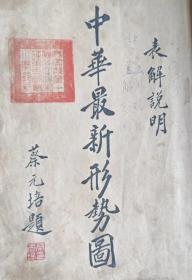 表解說明
中華最新形勢圖
蔡元培題